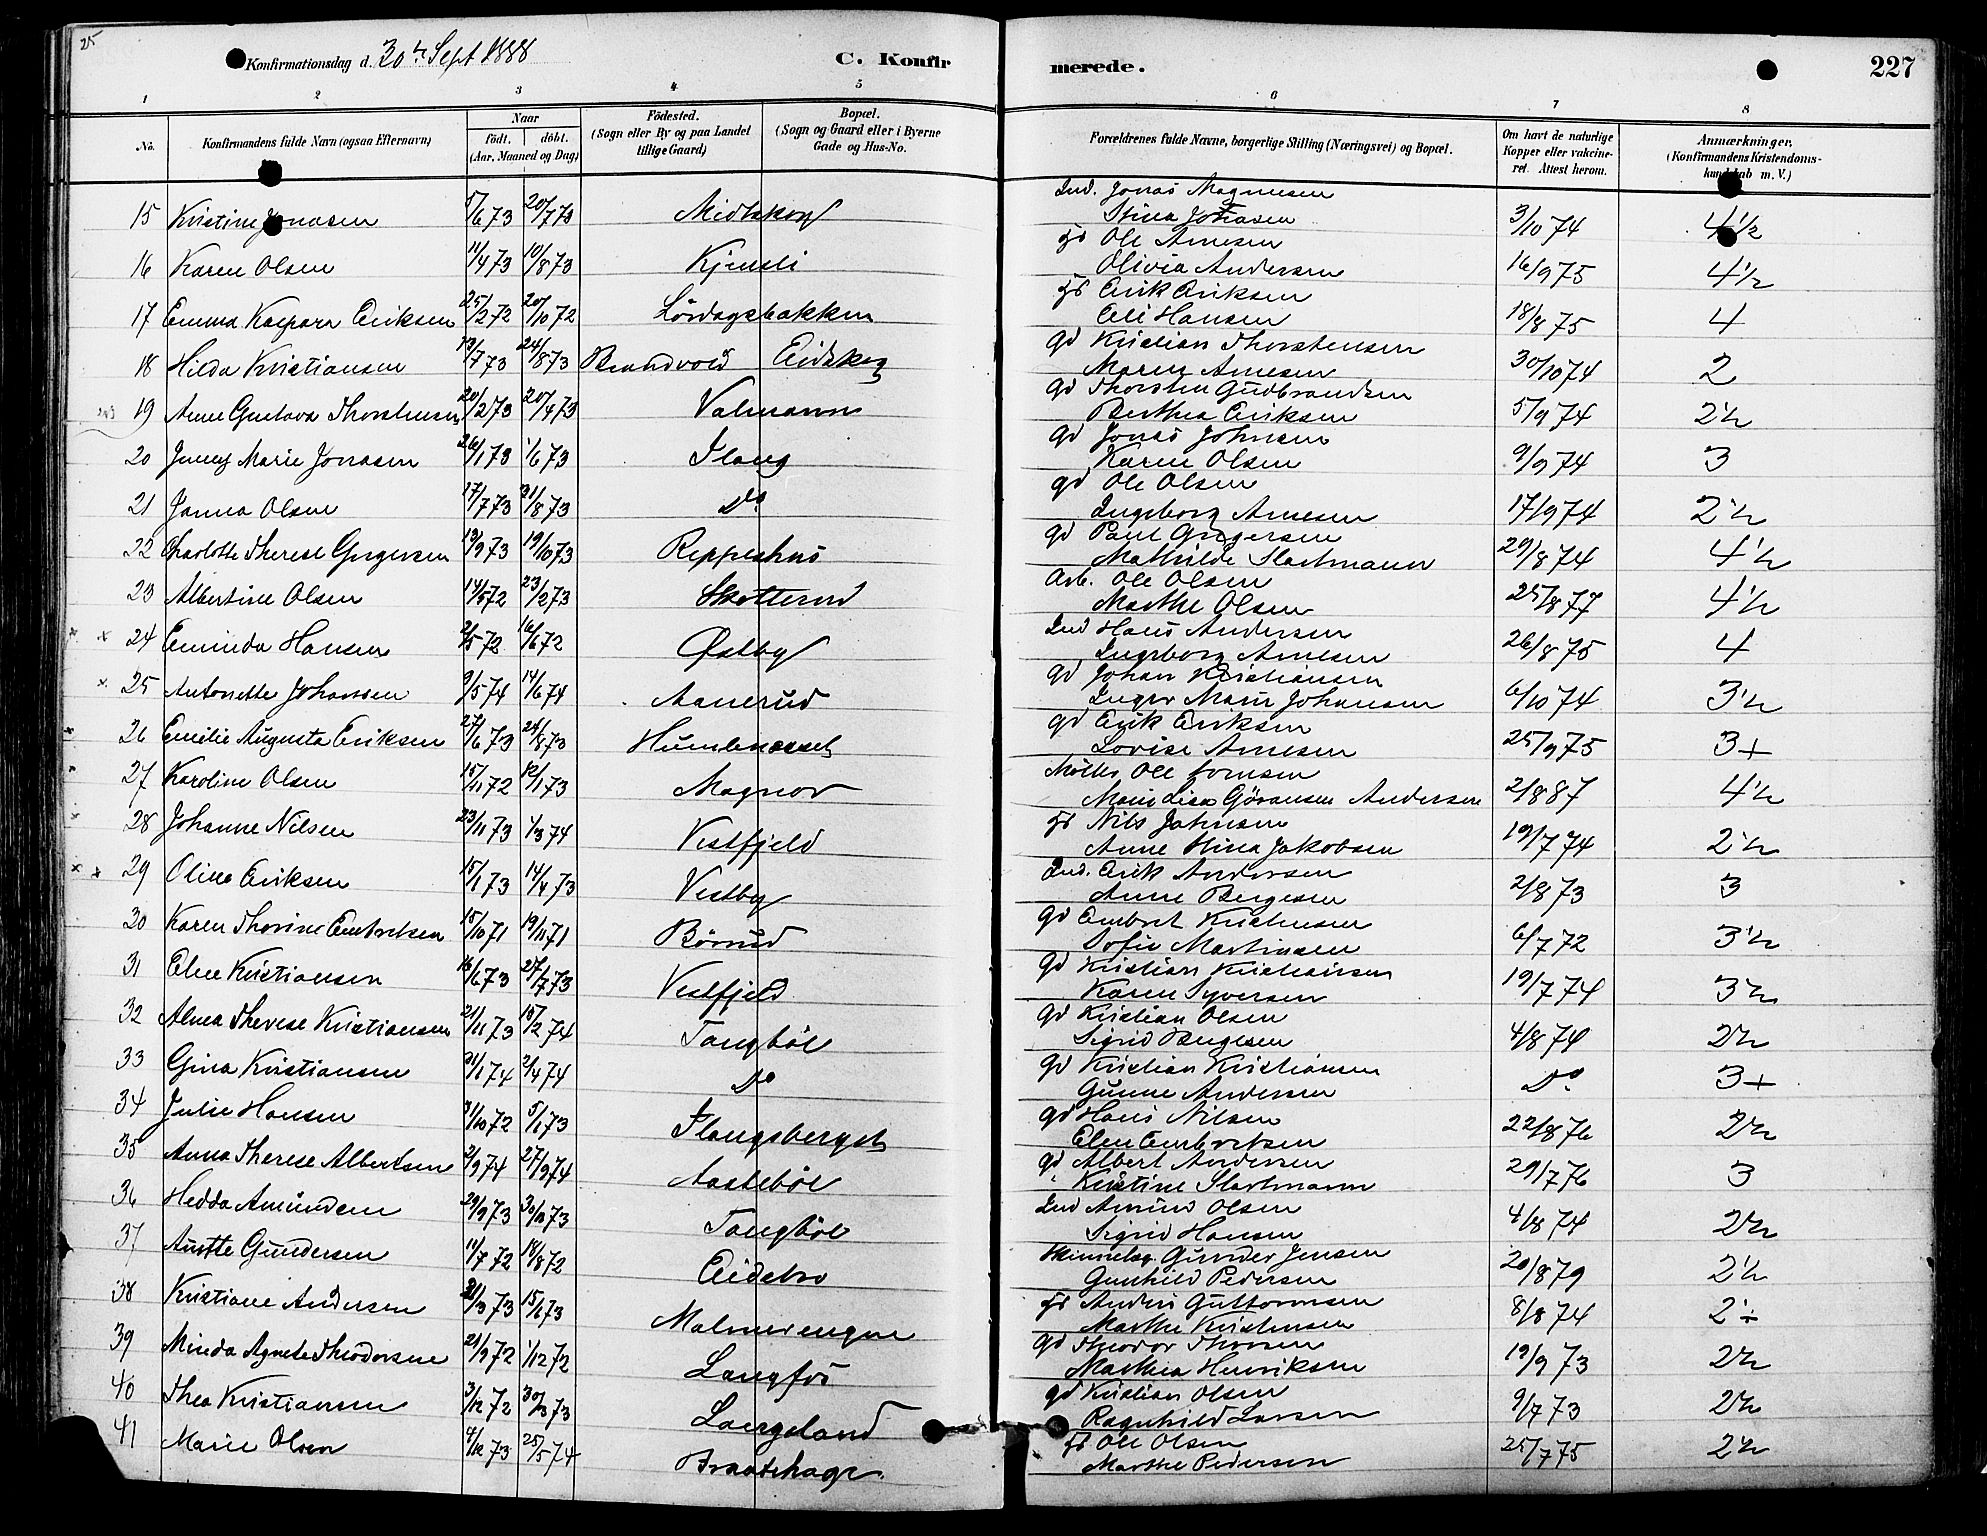 25
Konfirmationsdag d. 30te Sept 1888
C. Konfir
merede.
227
1 2 3 4 5 6 7 8
No.
Konfirmandens fulde Navn (ogsaa Efternavn)
Naar
födt. döbt.
(Aar, Maaned og Dag)
Födested.
(Sogn eller By og paa Landet
tillige Gaard)
Bopæl.
(Sogn og Gaard eller i Byerne
Gade og Hus-No.
Forældrenes fulde Navne, borgerlige Stilling (Næringsvei) og Bopæl.
Om havt de naturlige
Kopper eller vakcine-
ret. Attest herom.
Anmærkninger.
(Konfirmandens Kristendoms-
kundskab m. V.)
15 Kristine Jonasen 5/6 73 20/7 73 Midtskog Ind. Jonas Magnusen
Stina Jonasen 3/10 74 4 1/2
16 Karen Olsen 11/4 73 10/8 73 Kjensli Fs Ole Arnesen
Olivia Andersen 16/9 75 4 1/2
17 Emma Kaspara Eriksen 25/2 72 20/10 72 Lördagsbakken Fs Erik Eriksen
Eli Hansen 18/8 75 4
18 Hilda Kristiansen 13/7 73 24/8 73 Brandvold Eidskog Gd Kristian Thorstensen
Maren Arnesen 30/10 74 2
19 Anne Gustava Thorstensen 20/2 73 20/4 73 Valmann Gd Thorsten Gudbrandsen
Berthea Eriksen 5/9 74 2 1/2
20 Jenny Marie Jonasen 26/1 73 1/6 73 Flang Gd Jonas Johnsen
Karen Olsen 9/9 74 3
21 Janna Olsen 17/7 73 31/8 73 Do. Gd Ole Olsen
Ingeborg Arnesen 17/9 74 2 1/2
22 Charlotte Therese Gregersen 13/9 73 19/10 73 Reppeshus Gd Paul Gregersen
Mathilde Slastmann 29/8 74 4 1/2
23 Albertine Olsen 14/5 72 23/2 73 Skotterud Arb. Ole Olsen
Marthe Olsen 25/8 77 4 1/2
24 Eminda Hansen 2/5 72 16/6 72 Østby Ind Hans Andersen
Ingeborg Arnesen 26/8 75 4
25 Antonette Johansen 9/5 74 14/6 74 Aanerud Gd Johan Kristiansen
Inger Marie Johansen 6/10 74 3 1/2
26 Emilie Augusta Eriksen 27/6 73 24/8 73 Humlenæsset Gd Erik Eriksen
Lovise Arnesen 25/9 75 3+
27 Karoline Olsen 15/11 72 12/1 73 Magnor Möller Ole
Marie Lisa Göransen Andersen 2/8 87 4 1/2
28 Johanne Nilsen 23/11 73 1/3 74 Vestfjeld Fs Nils Jahnsen
Anne Stina Jakobsen 19/7 74 2 1/2
29 Oline Eriksen 15/1 73 14/4 73 Vestby Ind. Erik Andersen
Anne Bergesen 2/8 73 3
30 Karen Thorine Embretsen 15/10 71 19/11 71 Börrud Gd Embret Kristensen
Sofie Martinsen 6/7 72 3 1/2
31 Elen Kristiansen 16/6 73 27/7 73 Vestfjeld Gd Kristian Kristiansen
Karen Syversen 19/7 74 3 1/2
32 Alma Therese Kristiansen 21/11 73 15/2 74 Tangböl Gd Kristian Olsen
Sigrid Bergesen 4/8 74 2 1/2
33 Gina Kristiansen 31/1 74 2/4 74 Do Gd Kristian Kristiansen
Gunne Andersen Do. 3+
34 Julie Hansen 31/10 72 5/1 73 Flangsberget Gd Hans Nilsen
Elen Embretsen 22/8 76 2 1/2
35 Anna Therese Albertsen 2/9 74 27/9 74 Aasteböl Gd Albert Andersen
Kristine Slastmann 29/7 76 3
36 Hedda Amundsen 29/9 73 30/10 73 Tangböl Ind Amund Olsen
Sigrid Hansen 4/8 74 2 1/2
37 Anette Gundersen 11/7 72 18/8 72 Eidsbro Gunder Jensen
Gunhild Pedersen 20/8 79 2 1/2
38 Kristiane Andersen 31/3 73 15/6 73 Malmerengen Fs Anders Guttormsen
Marthe Kristensen 8/8 74 2÷
39 Minda Agnete Theodorsen 21/9 72 1/12 72 Langfos Gd Theodor Thoresen
Marthea Henriksen 19/9 73 2 1/2
40 Thea Kristiansen 3/12 72 30/3 73 Laergeland Gd Kristian Olsen
Ragnhild Larsen 9/7 73 2 1/2
41 Marie Olsen 4/12 73 25/5 74 Braatehage Fs Ole Olsen
Marthe Pedersen 25/7 75 2 1/2